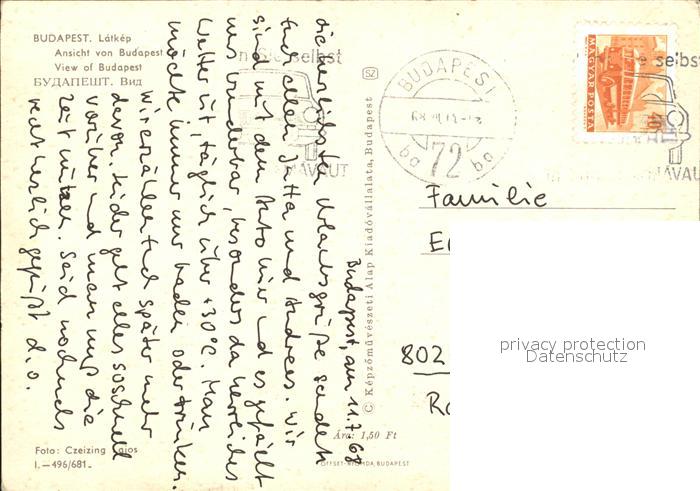 BUDAPEST. Látkép
Ansicht von Budapest
View of Budapest
БУДАПЕШТ. Вид
Budapest, am 11.7.68
die herzlichsten Urlaubsgrüße senden
Euch allen Jutta und Andreas. Wir
sind mit dem Auto hier und es gefällt
uns wunderbar, besonders da herrliches
Wetter ist, täglich über +30°C. Man
möchte immer nur baden oder trinken.
Wir erzählen Euch später mehr
davon. Leider geht alles so schnell
vorüber und man muß die
Zeit nützen. Seid nochmals
recht herzlich gegrüßt d. o.
Foto: Czeizing Lajos
I.—496/681.
SZ
© Képzőművészeti Alap Kiadóvállalata, Budapest
Ára: 1,50 Ft
BUDAPEST
72
selbst
NAVAUT
MAGYAR POSTA
selbst
NAVAUT
Familie
802
privacy protection
Datenschutz